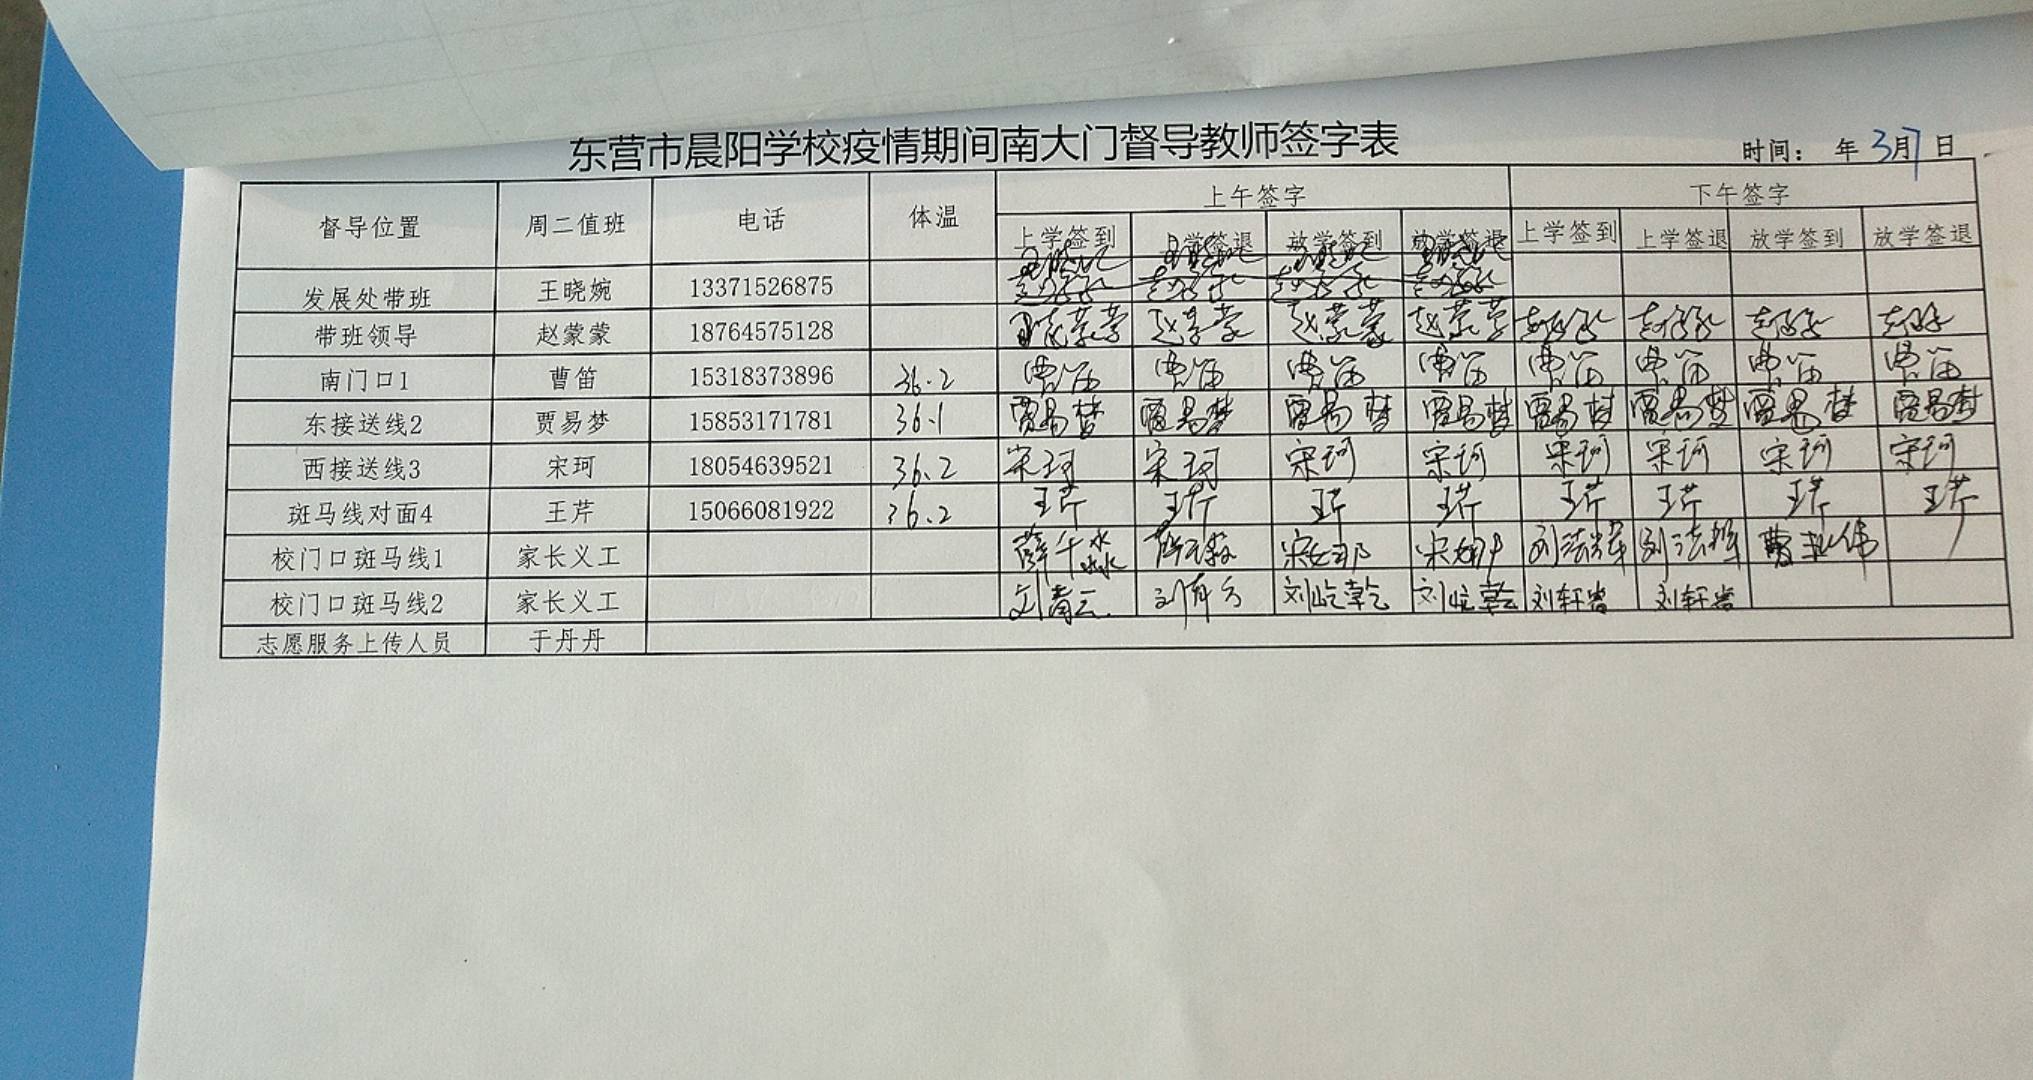 东营市晨阳学校疫情期间南大门督导教师签字表
时间： 年 3月7日
督导位置 周二值班 电话 体温 上午签字 下午签字
上学签到 上学签退 放学签到 放学签退 上学签到 上学签退 放学签到 放学签退
发展处带班 王晓婉 13371526875
带班领导 赵蒙蒙 18764575128 赵蒙蒙 赵蒙蒙 赵蒙蒙
南门口1 曹笛 15318373896 36.2 曹笛 曹笛 曹笛 曹笛 曹笛 曹笛 曹笛 曹笛
东接送线2 贾易梦 15853171781 36.1 贾易梦 贾易梦 贾易梦 贾易梦 贾易梦 贾易梦 贾易梦 贾易梦
西接送线3 宋珂 18054639521 36.2 宋珂 宋珂 宋珂 宋珂 宋珂 宋珂 宋珂 宋珂
斑马线对面4 王芹 15066081922 36.2 王芹 王芹 王芹 王芹 王芹 王芹 王芹 王芹
校门口斑马线1 家长义工
校门口斑马线2 家长义工 刘屹乾 刘屹乾 刘轩岩 刘轩岩
志愿服务上传人员 于丹丹